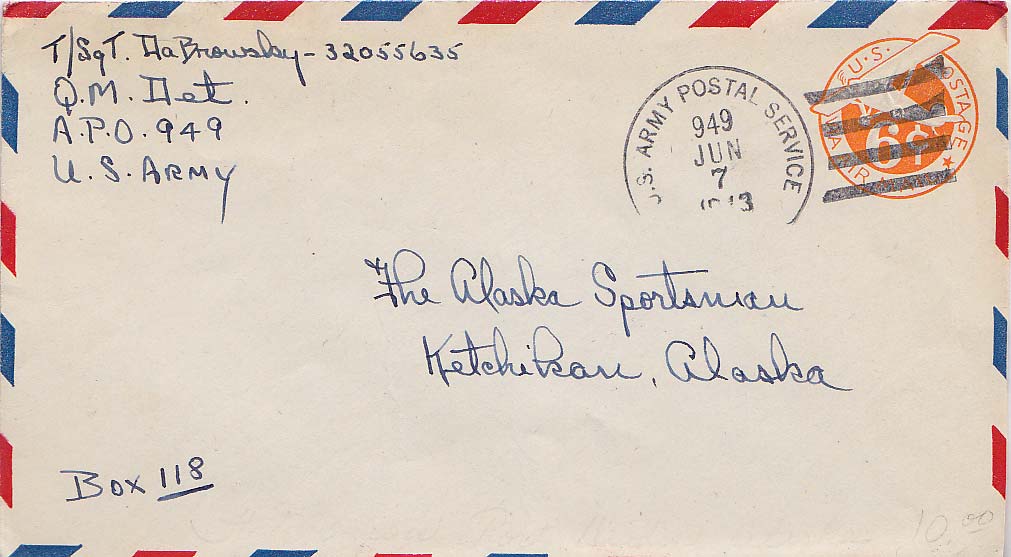 T/Sgt. DaBrowsky - 32055635
Q.M. Det.
A.P.O. 949
U.S. ARMY
U.S. ARMY POSTAL SERVICE
949
JUN
7
U.S. POSTAGE
6¢
AIR
The Alaska Sportsman
Ketchikan, Alaska
Box 118
10.00